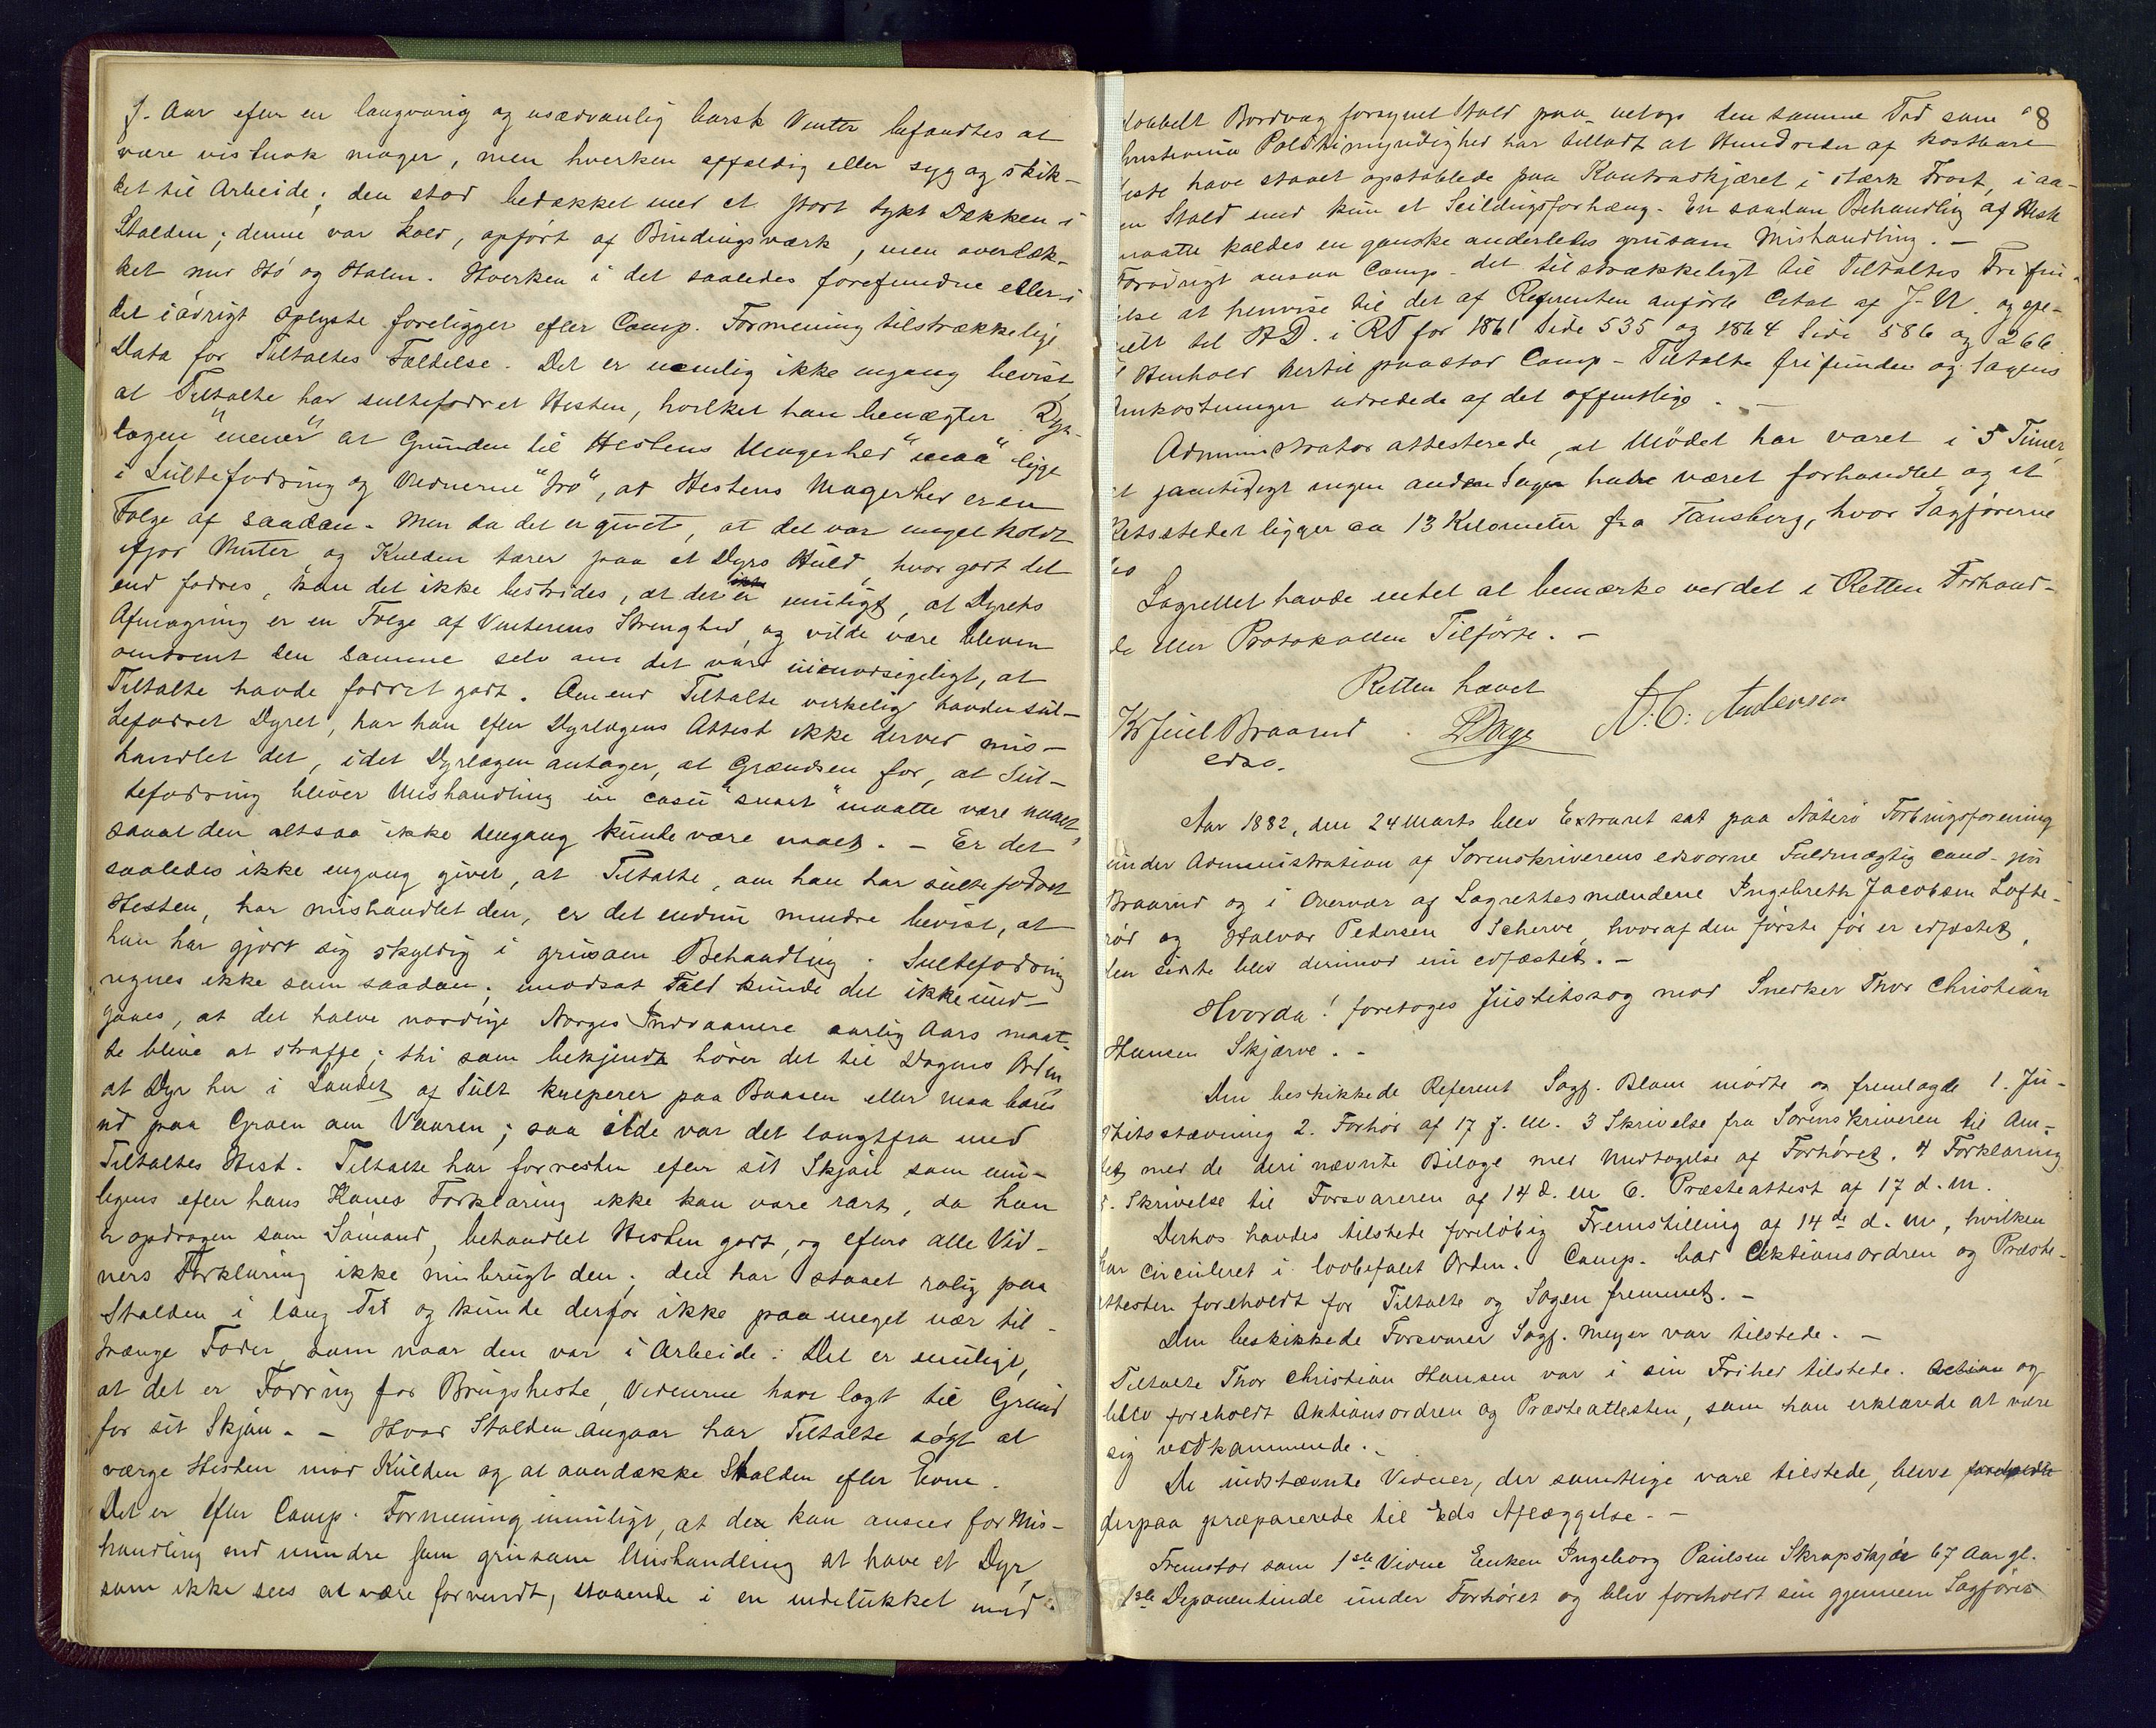 f. Aar efter en langvarig og usædvanlig barsk Vinter befandtes at
være vistnok mager, men hverken affældig eller syg og skik-
ket til Arbeide; den stod bedækket med et stort tykt Dækken i
Stalden; denne var kold, opført af Bindingsværk, men overdæk-
ket med Hø og Halm. Hverken i det saaledes forefundne eller i
det iøvrigt Oplyste foreligger efter Comp. Formening tilstrækkelige
Data for Tiltaltes Fældelse. Det er nemlig ikke engang bevist,
at Tiltalte har sultefodret Hesten, hvilket han benægter. Dyr-
lægen "mener" at Grunden til Hestens Magerhed "maa" ligge
i Sultefodring og Vidnerne "tro", at Hestens Magerhed er en
Følge af saadan. Men da det er givet, at det var meget koldt
ifjor Vinter, og Kulden tærer paa et Dyrs Huld, hvor godt det
end fodres, kan det ikke bestrides, at det er muligt, at Dyrets
Afmagring er en Følge af Vinterens Strenghed, og vilde være bleven
omtrent den samme selv om det var uimodsigeligt, at
Tiltalte havde fodret godt. Om end Tiltalte virkelig havde sul-
tefodret Dyret, har han efter Dyrlægens Attest ikke derved mis-
handlet det, idet Dyrlægen antager, at Grændsen for, at Sul-
tefodring bliver Mishandling in casu "snart" maatte være naaet,
saa at den altsaa ikke dengang kunde være naaet. - Er det
saaledes ikke engang givet, at Tiltalte, om han har sultefodret
Hesten, har mishandlet den, er det endnu mindre bevist, at
han har gjort sig skyldig i grusom Behandling. Sultefodring
regnes ikke som saadan; i modsat Fald kunde det ikke und-
gaaes, at det halve nordlige Norges Indvaanere aarlig Aars maat-
te blive at straffe; thi som bekjendt hører det til Dagens Orden,
at Dyr her i Landet af Sult kreperer paa Baasen eller maa bæres
ud paa Græen om Vaaren; saa ilde var det langtfra med
Tiltaltes Hest. Tiltalte har forresten efter sit Skjøn som mu-
ligens efter hans Kones Forklaring ikke kan være rart, da han
er opdragen som Sømand, behandlet Hesten godt, og efter alle Vid-
ners Forklaring ikke misbrugt den; den har staaet rolig paa
Stalden i lang Tid og kunde derfor ikke paa meget nær til-
trænge Foder som naar den var i Arbeide. Det er muligt,
at det er Fodring for Brugsheste, Vidnerne have lagt til Grund
for sit Skjøn. - Hvad Stalden angaar har Tiltalte søgt at
værge Hesten mod Kulden og at overdække Stalden efter Evne.
Det er efter Comp. Formening umuligt, at det kan ansees for Mis-
handling end mindre som grusom Mishandling at have et Dyr,
som ikke sees at være forvendt, staaende i en indelukket med
dobbelt Bordvæg forsynet Stald paa netop den samme Tid som 8
hristiania Politimyndighed har tilladt at Hundreder af kostbare
este have staaet opstablede paa Kontraskjæret i stærk Frost, i aa-
en Stald med kun et Seildugsforhæng. En saadan Behandling af Hest
maatte kaldes en ganske anderledes grusom Mishandling. -
Forøvrigt ansaa Comp. det tilstrækkeligt til Tiltaltes Frifin-
else at henvise til det af Referenten anførte Citat af J-N. og spe-
cielt til H.D. i RT for 1861 Side 535 og 1864 Side 586 og 266.
Henhold hertil paastod Comp- Tiltalte frifunden og Sagens
mkostninger udredede af det offentlige. -
Administrator attesterede, at Mødet har varet i 5 Timer,
t samtidigt ingen anden Sager have været forhandlet og at
Retsstedet ligger ca 13 Kilometer fra Tønsberg, hvor Sagførerne
bo
Lagrettet havde intet at bemærke ved det i Retten Forhand-
de eller Protokollen Tilførte. -
Retten hævet
Kr Juel Braarud
edsv.
N. C. Andersen
Aar 1882, den 24 Marts blev Extraret sat paa Nøterø Forbrugsforening
under Administration af Sorenskriverens edsvorne Fuldmægtig cand. jur
Braarud og i Overvær af Lagrettesmændene Ingebreth Jacobsen Lofte-
rød og Halvor Pedersen Scherve, hvoraf den første før er edfæstet,
den sidste blev derimod nu edfæstet. -
Hvorda! foretoges Justitssag mod Snedker Thor Christian
Hansen Skjærve. -
Den beskikkede Referent Sagf. Blom mødte og fremlagde 1. Ju-
stitsstævning 2. Forhør af 17 f. M. 3 Skrivelse fra Sorenskriveren til Am-
tet med de deri nævnte Bilage med Undtagelse af Forhøret. 4 Forklaring
5. Skrivelse til Forsvareren af 14 d. M 6. Præsteattest af 17 d. M.
Derhos havdes tilstede foreløbig Fremstilling af 14de d. M, hvilken
har circuleret i lovbefalet Orden. Comp. bad Aktionsordren og Præste-
attesten foreholdt for Tiltalte og Sagen fremmet. -
Den beskikkede Forsvarer Sagf. Meyer var tilstede. -
Tiltalte Thor Christian Hansen var i sin Frihed tilstede. Action og
blev foreholdt Aktionsordren og Præsteattesten, som han erklærede at være
sig vedkommende. -
De indstævnte Vidner, der samtlige vare tilstede, bleve foreholdte
derpaa præparerede til Eds Aflæggelse. -
Fremstod som 1ste Vidne Enken Ingeborg Paulsen 67 Aar gl.
1ste Deponentinde under Forhøret og blev foreholdt sin gjennem Sagfører